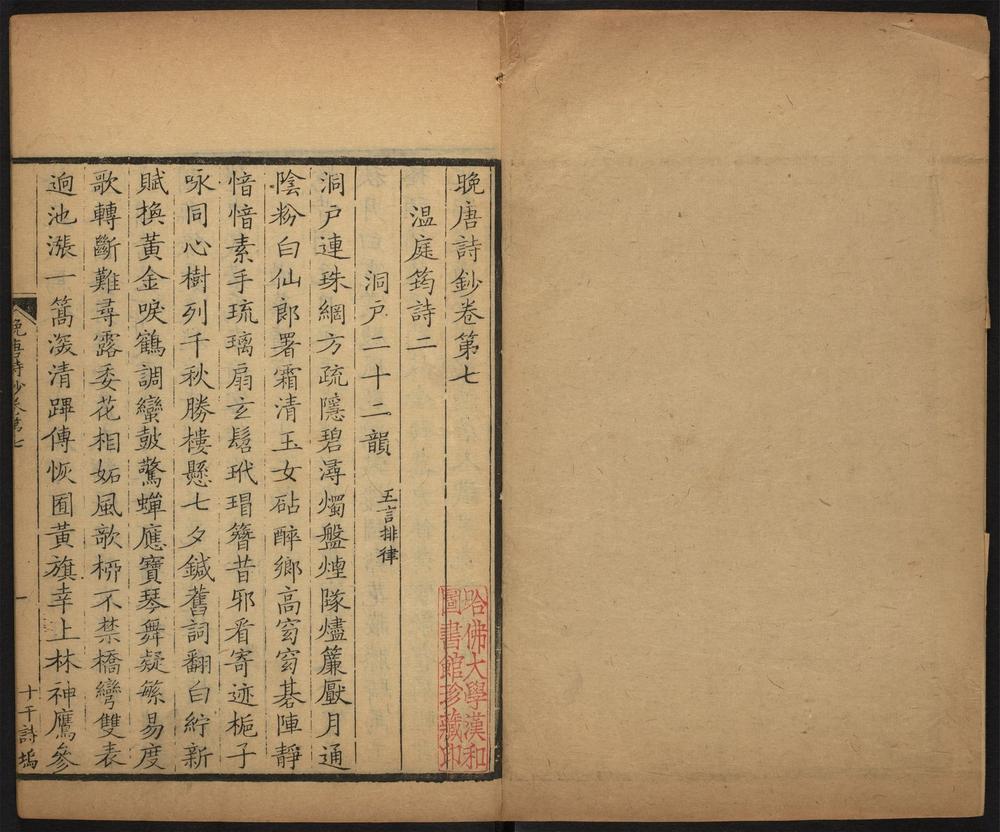 晚唐詩鈔卷第七
温庭筠詩二
洞戶二十二韻 五言排律
洞戶連珠網方疏隱碧潯燭盤煙隊燼簾壓月通
陰粉白仙郎署霜清玉女砧醉鄉高窈窈碁陣靜
愔愔素手琉璃扇玄髫玳瑁簪昔邪看寄迹梔子
咏同心樹列千秋勝樓懸七夕鍼舊詞翻白紵新
賦換黃金唳鶴調蠻鼓驚蟬應寶琴舞疑繁易度
歌轉斷難尋露委花相妬風欹栁不禁橋彎雙表
迥池漲一篙深清蹕傳恢囿黃旗幸上林神鷹參
晚唐詩鈔卷第七
一
十千詩塢
哈佛大學漢和
圖書館珍藏印